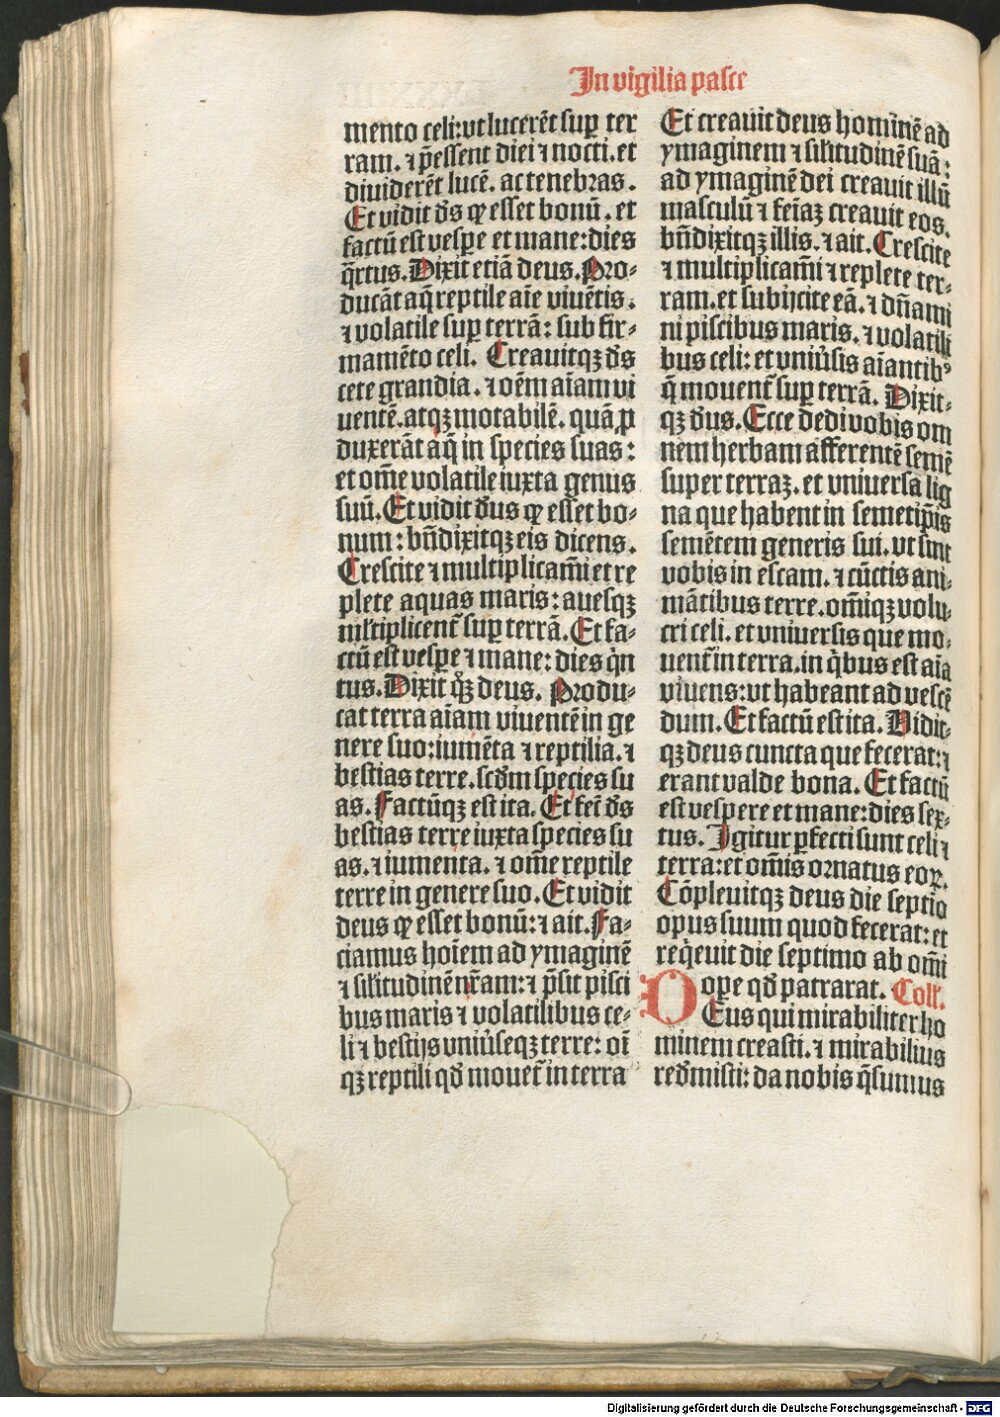 In vigilia pasce
mento celi: vt lucerēt suꝑ ter
ram. ⁊ p̄essent diei ⁊ nocti. et
diuiderēt lucē. ac tenebras.
Et vidit dꝰs ꝙ esset bonū. et
factū est vespe et mane: dies
q̄rtus. Dixit etiā deus. Pro⸗
ducāt aq̄ reptile aīe viuētis.
⁊ volatile suꝑ terrā: sub fir⸗
mamēto celi. Creauitqꝫ dꝰs
cete grandia. ⁊ oēm aīam vi
uentē. atqꝫ motabilē. quā ꝓ
duxerāt aq̄ in species suas:
et om̄e volatile iuxta genus
suū. Et vidit dꝰus ꝙ esset bo⸗
num: bn̄dixitqꝫ eis dicens.
Crescite ⁊ multiplicam̄i et re
plete aquas maris: auesqꝫ
ml̄tiplicent̄ suꝑ terrā. Et fa⸗
ctū est vespe ⁊ mane: dies q̇n
tus. Dixit qͦꝫ deus. Produ⸗
cat terra aīam viuentē in ge
nere suo: iumēta ⁊ reptilia. ⁊
bestias terre. scd̄m species su
as. Factūqꝫ est ita. Et fec̄ dꝰs
bestias terre iuxta species su
as. ⁊ iumenta. ⁊ om̄e reptile
terre in genere suo. Et vidit
deus ꝙ esset bonū: ⁊ ait. Fa⸗
ciamus hoīem ad ymaginē
⁊ sil̄itudinē nr̄am: ⁊ p̄sit pisci
bus maris ⁊ volatilibus ce⸗
li ⁊ bestijs vniūseqꝫ terre: oī
qꝫ reptili qd̄ mouet̄ in terra
Et creauit deus hominē ad
ymaginem ⁊ sil̄itudinē suā:
ad ymaginē dei creauit illū
masculū ⁊ fēiaꝫ creauit eos.
bn̄dixitqꝫ illis. ⁊ ait. Crescite
⁊ multiplicam̄i ⁊ replete ter⸗
ram. et subijcite eā. ⁊ dn̄ami
ni piscibus maris. ⁊ volatili
bus celi: et vniūsis aīantibꝰ
q̄ mouent̄ suꝑ terrā. Dixit⸗
qꝫ dꝰus. Ecce dedi vobis om
nem herbam afferentē semē
super terraꝫ. et vniuersa lig
na que habent in semetip̄is
semētem generis sui. vt sint
vobis in escam. ⁊ cūctis ani⸗
mātibus terre. om̄iqꝫ volu⸗
cri celi. et vniuersis que mo⸗
uent̄ in terra. in q̇bus est aīa
viuens: vt habeant ad vescē
dum. Et factū est ita. Vidit⸗
qꝫ deus cuncta que fecerat: ⁊
erant valde bona. Et factū
est vespere et mane: dies sex⸗
tus. Igitur ꝑfecti sunt celi ⁊
terra: et om̄is ornatus eoꝝ.
Cōpleuitqꝫ deus die septīo
opus suum quod fecerat: et
req̇euit die septimo ab om̄i
oꝑe qd̄ patrarat. Coll̄.
DEus qui mirabiliter ho
minem creasti. ⁊ mirabilius
redꝰmisti: da nobis q̄sumus
Digitalisierung gefördert durch die Deutsche Forschungsgemeinschaft - DFG